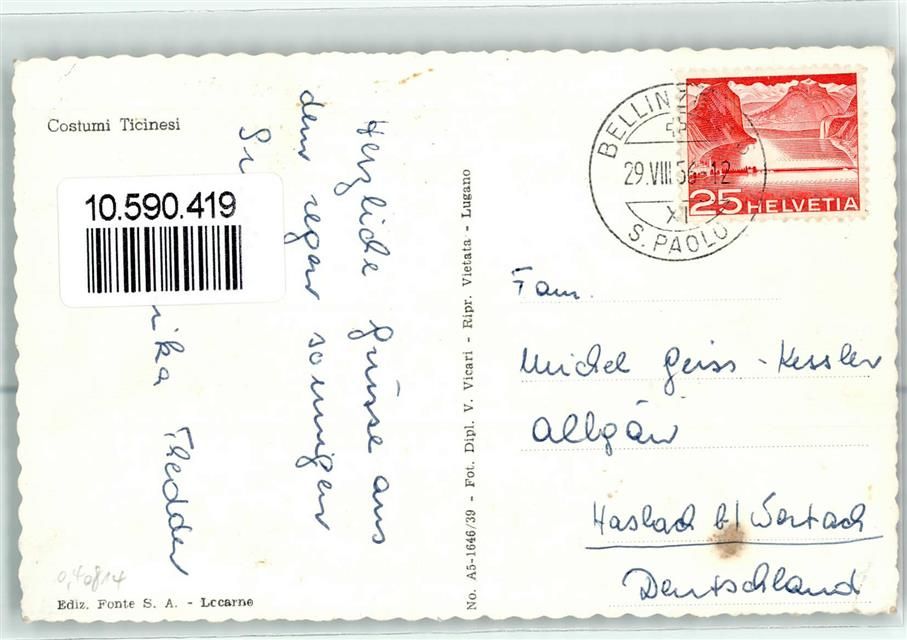 Costumi Ticinesi
10.590.419
Herzliche Grüsse aus
dem sonniger
Thedder
0,40
Ediz. Fonte S. A. - Locarno
No. A5-1646/39 - Fot. Dipl. V. Vicari - Ripr. Vietata - Lugano
BELLINZ
29.VIII.56-12
XI
S. PAOLO
25 HELVETIA
Fam.
Michel Geiss-Kessler
Allgäu
Haslach b/ Wertach
Deutschland